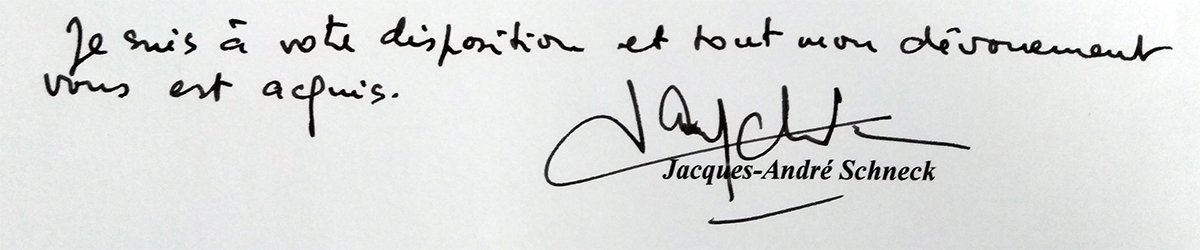 Je suis à votre disposition et tout mon dévouement
vous est acquis.
Jacques-André Schneck